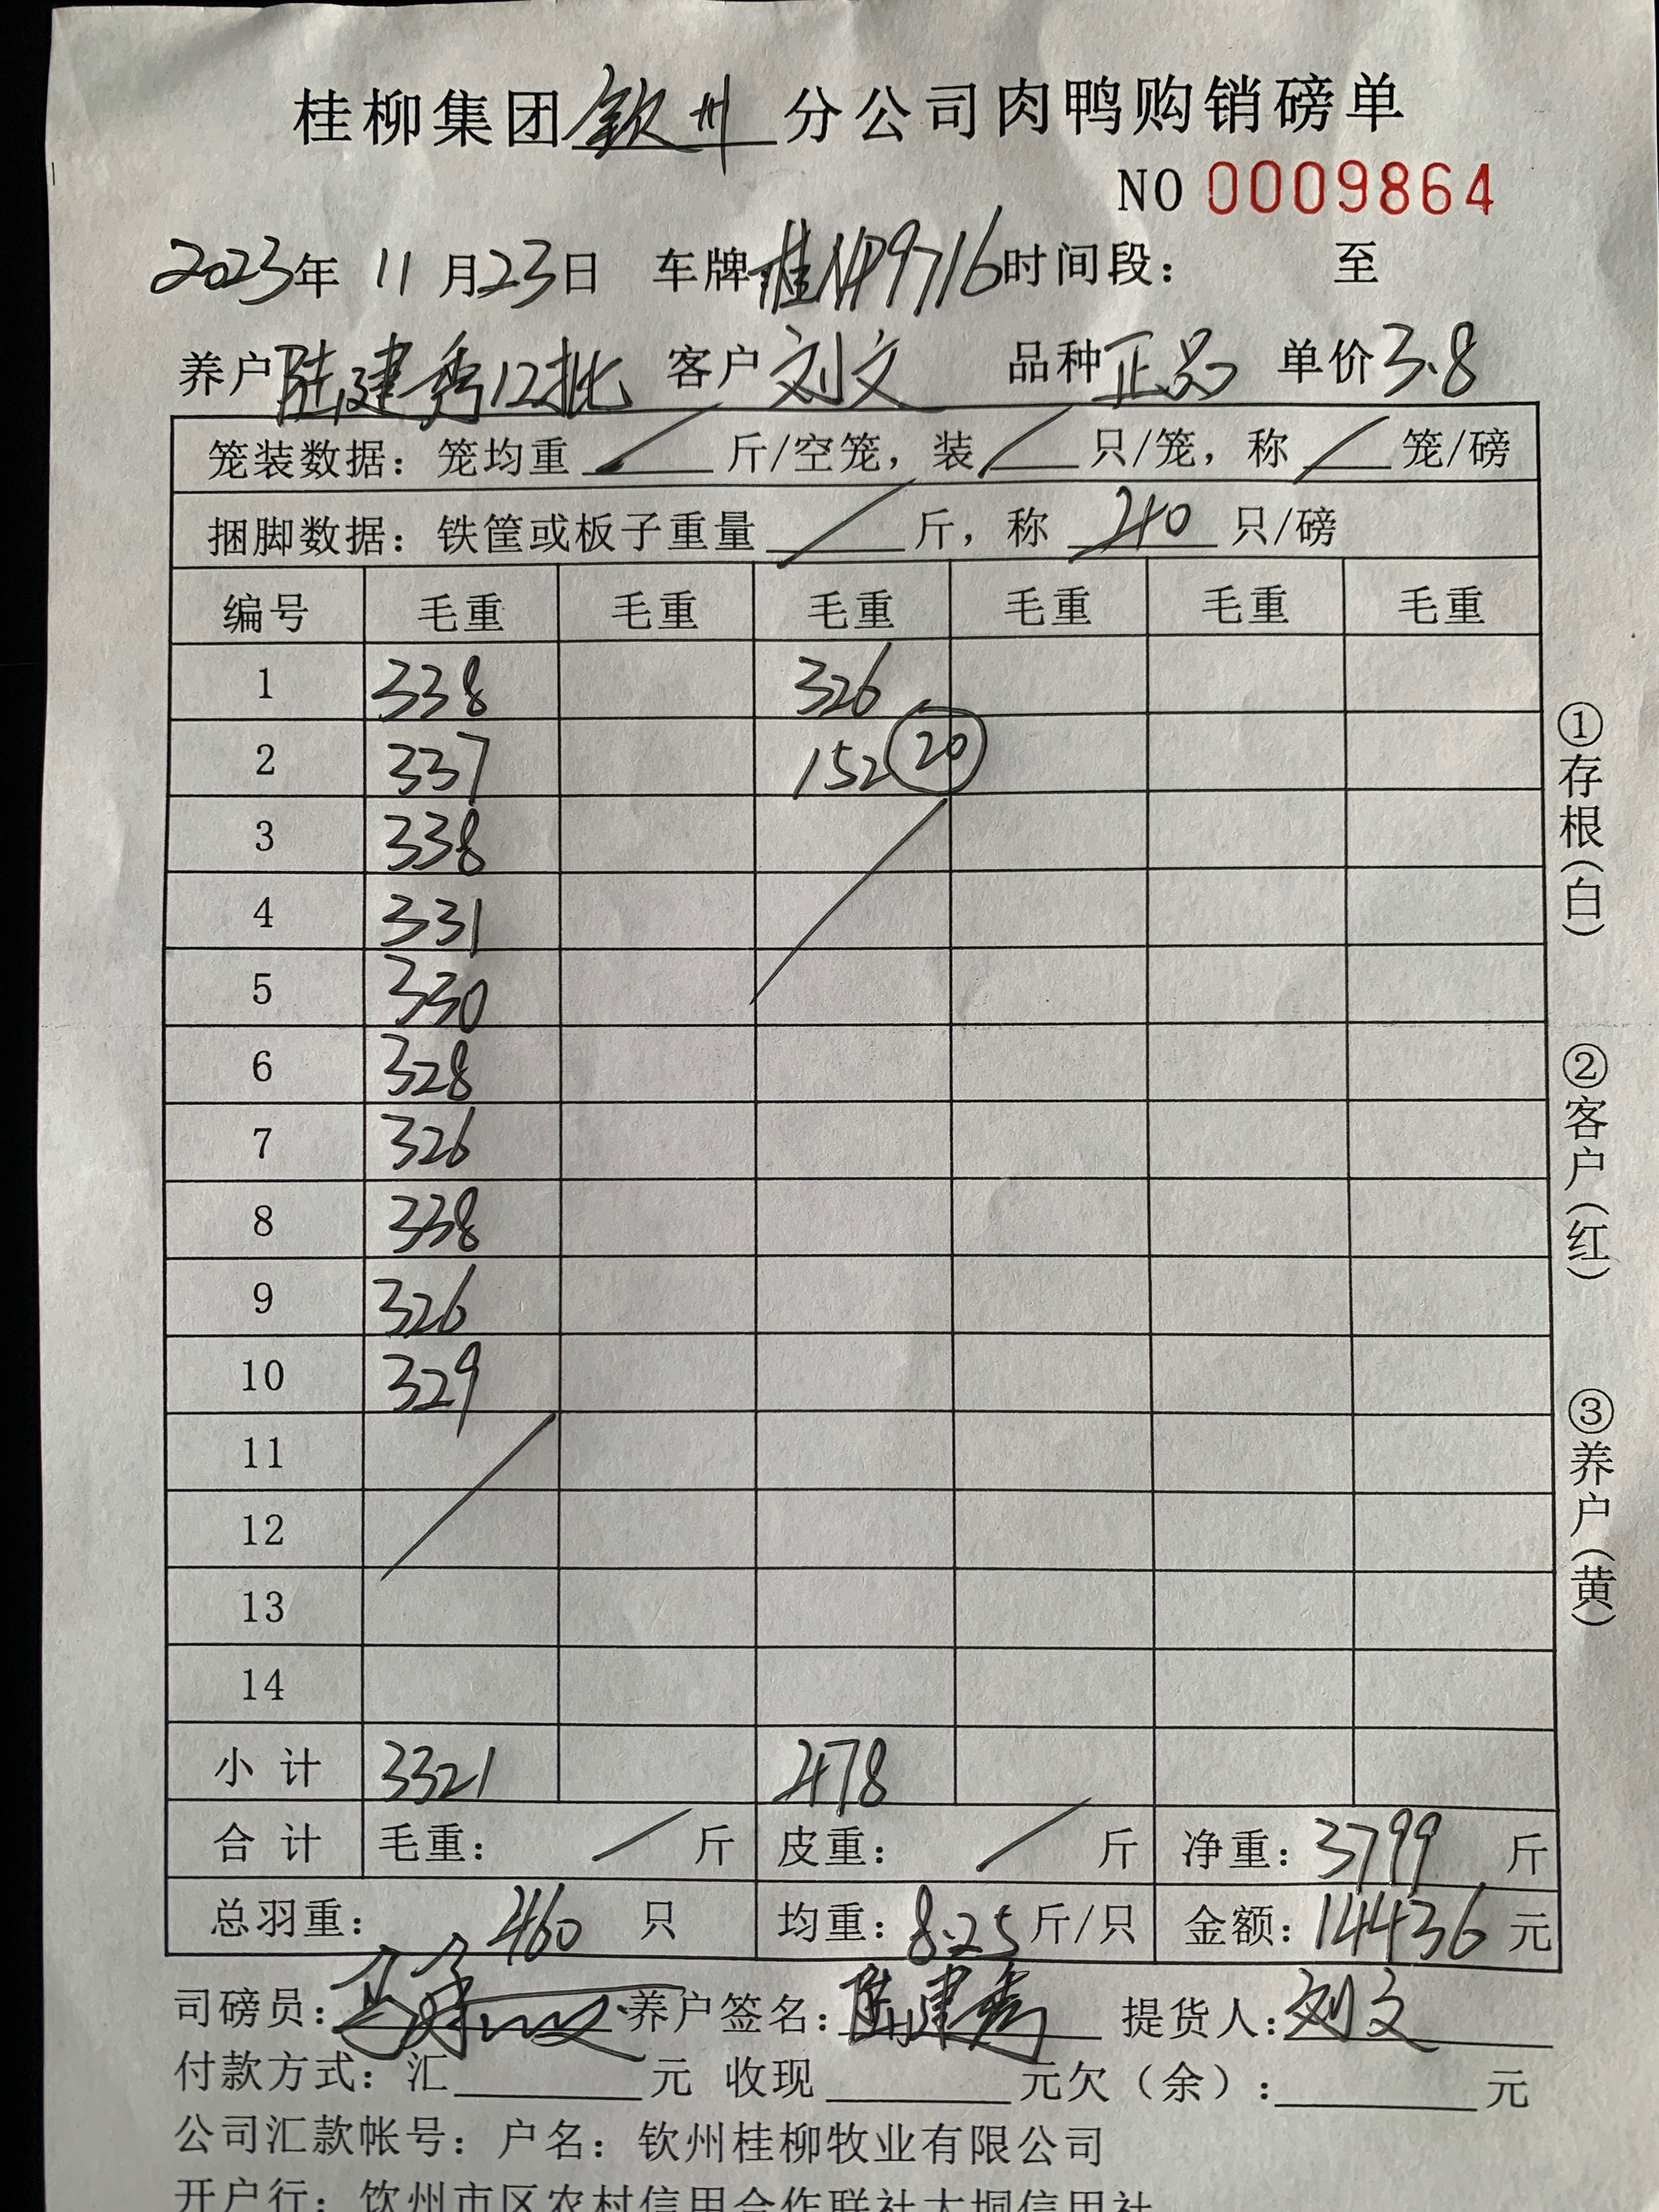 桂柳集团钦州分公司肉鸭购销磅单
NO 0009864
2023年 11月23日 车牌桂NP9716时间段： 至
养户陆建秀12批 客户刘文 品种正品 单价3.8
笼装数据：笼均重/斤/空笼，装/只/笼，称/笼/磅
捆脚数据：铁筐或板子重量/斤，称40只/磅
编号 毛重 毛重 毛重 毛重 毛重 毛重
1 338 326
2 337 152 ⑳
3 338 /
4 331
5 330
6 328
7 326
8 338
9 326
10 329
11 /
12
13
14
小计 3321 478
合计 毛重：/斤 皮重：/斤 净重：3799斤
总羽重：460只 均重：8.25斤/只 金额：14436元
司磅员： 养户签名：陆建秀 提货人：刘文
付款方式：汇 元 收现 元欠（余）： 元
公司汇款帐号：户名：钦州桂柳牧业有限公司
开户行：钦州市区农村信用合作联社大垌信用社
①存根（白）
②客户（红）
③养户（黄）